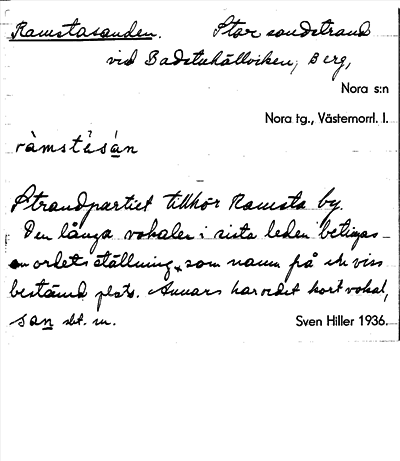 Ramstasanden. Stor sandstrand
vid Badstuhällviken, Berg,
Nora s:n
Nora tg., Västernorrl. l.
ràmstásán
Strandpartiet tillhör Ramsta by.
Den långa vokalen i sista leden betingas
ordets ställning, som namn på en viss
bestämd plats. Annars har ordet kort vokal,
san sbt. m.
Sven Hiller 1936.